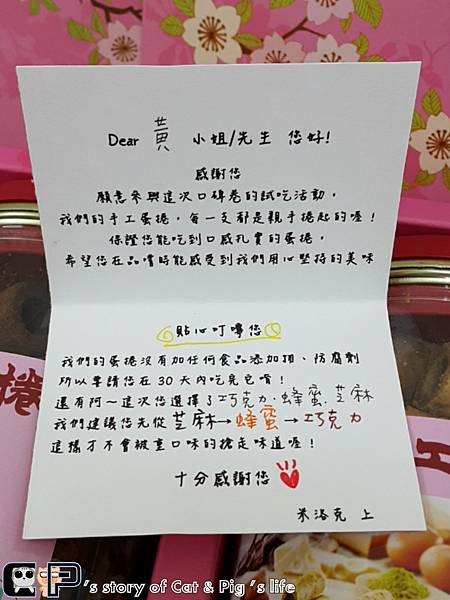 Dear 黃 小姐/先生 您好!
感謝您
願意參與這次口碑卷的試吃活動，
我們的手工蛋捲，每一支都是親手捲起的喔！
保證您能吃到口感扎實的蛋捲，
希望您在品嚐時能感受到我們用心堅持的美味
貼心叮嚀您
我們的蛋捲沒有加任何食品添加物、防腐劑
所以要請您在30天內吃完它唷！
還有阿～這次您選擇了巧克力、蜂蜜、芝麻
我們建議您先從芝麻→蜂蜜→巧克力
這樣才不會被重口味的搶走味道喔！
十分感謝您
米洛克 上
捲
工
CP's story of Cat & Pig's life